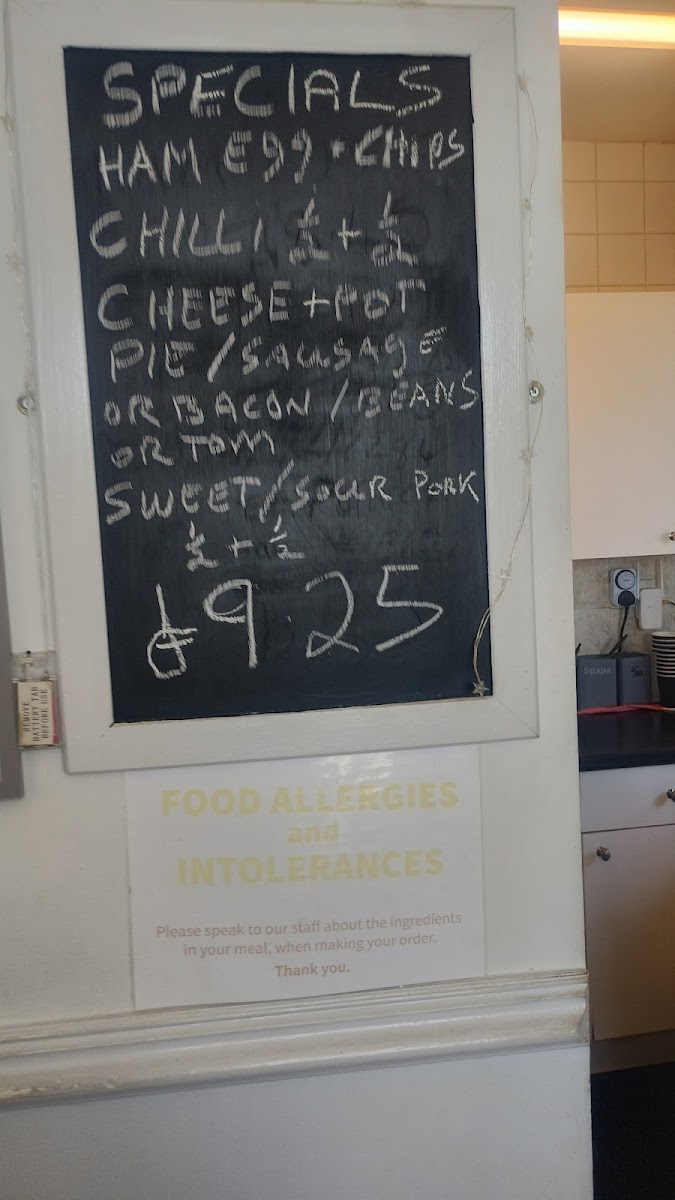 SPECIALS
HAM EGG + CHIPS
CHILLI ½ + ½
CHEESE + POT
PIE / SAUSAGE
OR BACON / BEANS
OR TOM
SWEET / SOUR PORK
½ + ½
£9.25
REMOVE
BATTERY TAB
BEFORE USE
FOOD ALLERGIES
and
INTOLERANCES
Please speak to our staff about the ingredients
in your meal, when making your order.
Thank you.
SUGAR